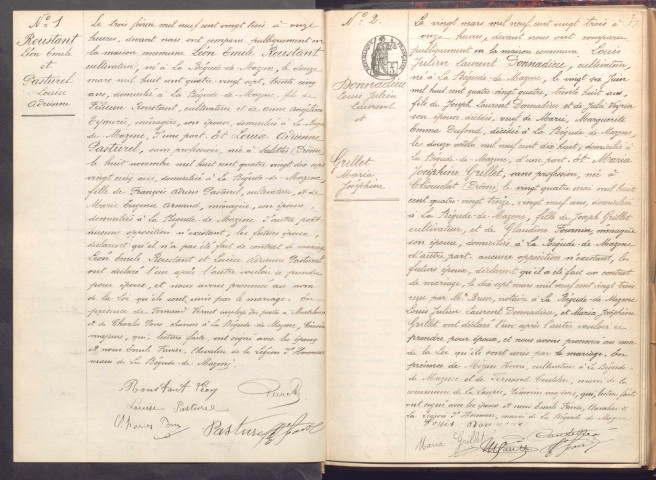 N° 1
Roustant
Léon Emile
et
Pasturel
Louise
Adrienne
Le trois février mil neuf cent vingt trois à onze
heures, devant nous ont comparu publiquement en
la maison commune Léon Emile Roustant
cultivateur, né à La Bégude de Mazenc, le douze
mars mil huit cent quatre vingt sept, trente cinq
ans, domicilié à La Bégude de Mazenc, fils de
Roustant, cultivateur et de
Eymerie, ménagère, son épouse, domiciliés à La Bégude
de Mazenc, d'une part. Et Louise Adrienne
Pasturel, sans profession, née à Salettes, Drôme,
le huit novembre mil huit cent quatre vingt dix sept
vingt cinq ans, domiciliée à La Bégude de Mazenc,
fille de François Pasturel, cultivateur, et de
Marie Eugénie Arnaud, ménagère, son épouse,
domiciliés à La Bégude de Mazenc. d'autre part
aucune opposition n'existant, les futurs époux
déclarent qu'il n'a pas été fait de contrat de mariage
Léon Emile Roustant et Louise Adrienne Pasturel
ont déclaré l'un après l'autre vouloir se prendre
pour époux, et nous avons prononcé au nom
de la Loi qu'ils sont unis par le mariage. En
présence de Fernand employé des postes à Montélimar
et de Charles à La Bégude de Mazenc, témoins
majeurs, qui, lecture faite, ont signé avec les époux
et nous Emile Chevalier de la Légion d'Honneur
maire de La Bégude de Mazenc.
Roustant Léon
Louise Pasturel
Pasturel
N° 2.
Donnadieu
Louis Julien
Laurent
et
Grillet
Maria
Joséphine
Le vingt mars mil neuf cent vingt trois à
onze heures, devant nous ont comparu
publiquement en la maison commune Louis
Julien Laurent Donnadieu, cultivateur,
né à La Bégude de Mazenc, le vingt six juin
mil huit cent quatre vingt quatre, trente huit ans,
fils de Joseph Laurent Donnadieu et de Julie
son épouse décédés, veuf de Marie Marguerite
Emma Dufond, décédée à La Bégude de Mazenc,
le douze mil neuf cent dix huit, domicilié à
La Bégude de Mazenc, d'une part. Et Maria
Joséphine Grillet, sans profession, née à
Cliousclat (Drôme) le vingt quatre mai mil huit
cent quatre vingt treize, vingt neuf ans, domiciliée
à La Bégude de Mazenc, fille de Joseph Grillet
cultivateur, et de Claudine ménagère
son épouse, domiciliés à La Bégude de Mazenc
d'autre part. aucune opposition n'existant, les
futurs époux, déclarent qu'il a été fait un contrat
de mariage, le dix sept mars mil neuf cent vingt trois
reçu par Me Brun, notaire à La Bégude de Mazenc
Louis Julien Laurent Donnadieu, et Maria Joséphine
Grillet ont déclaré l'un après l'autre vouloir se
prendre pour époux, et nous avons prononcé au nom
de la Loi qu'ils sont unis par le mariage. En
présence de cultivateur à La Bégude
de Mazenc et de Fernand maire de la
commune de témoins majeurs, qui, lecture faite
ont signé avec les époux et nous Emile Chevalier de
la Légion d'Honneur, maire de La Bégude de Mazenc
Louis Donnadieu
Maria Grillet